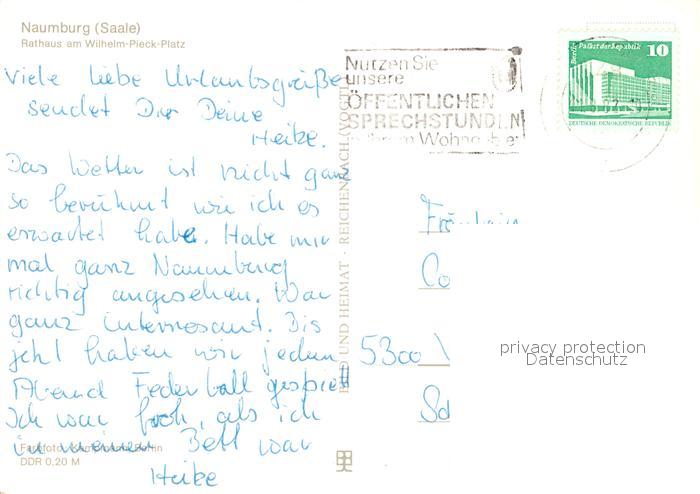 Naumburg (Saale)
Rathaus am Wilhelm-Pieck-Platz
Viele liebe Urlaubsgrüße
sendet Dir Deine
Heike.
Das Wetter ist nicht ganz
so berühmt wie ich es
erwartet habe. Habe mir
mal ganz Naumburg
richtig angesehen. War
ganz interresant. Bis
jetzt haben wir jeden
Abend Federball gespielt
Ich war froh, als ich
in meiner Bett war
Heike
Farbfoto: Kampmann, Berlin
DDR 0,20 M
BILD UND HEIMAT · REICHENBACH (VOGTL)
Nutzen Sie
unsere
ÖFFENTLICHEN
SPRECHSTUNDEN
Berlin, Palast der Republik
10
DEUTSCHE DEMOKRATISCHE REPUBLIK
Fräulein
Co
5300
Sd
privacy protection
Datenschutz